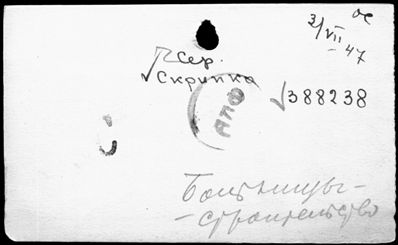 3/VII-47
Сер.
Скрипка
388238
АПФ
Больницы-
-строительство